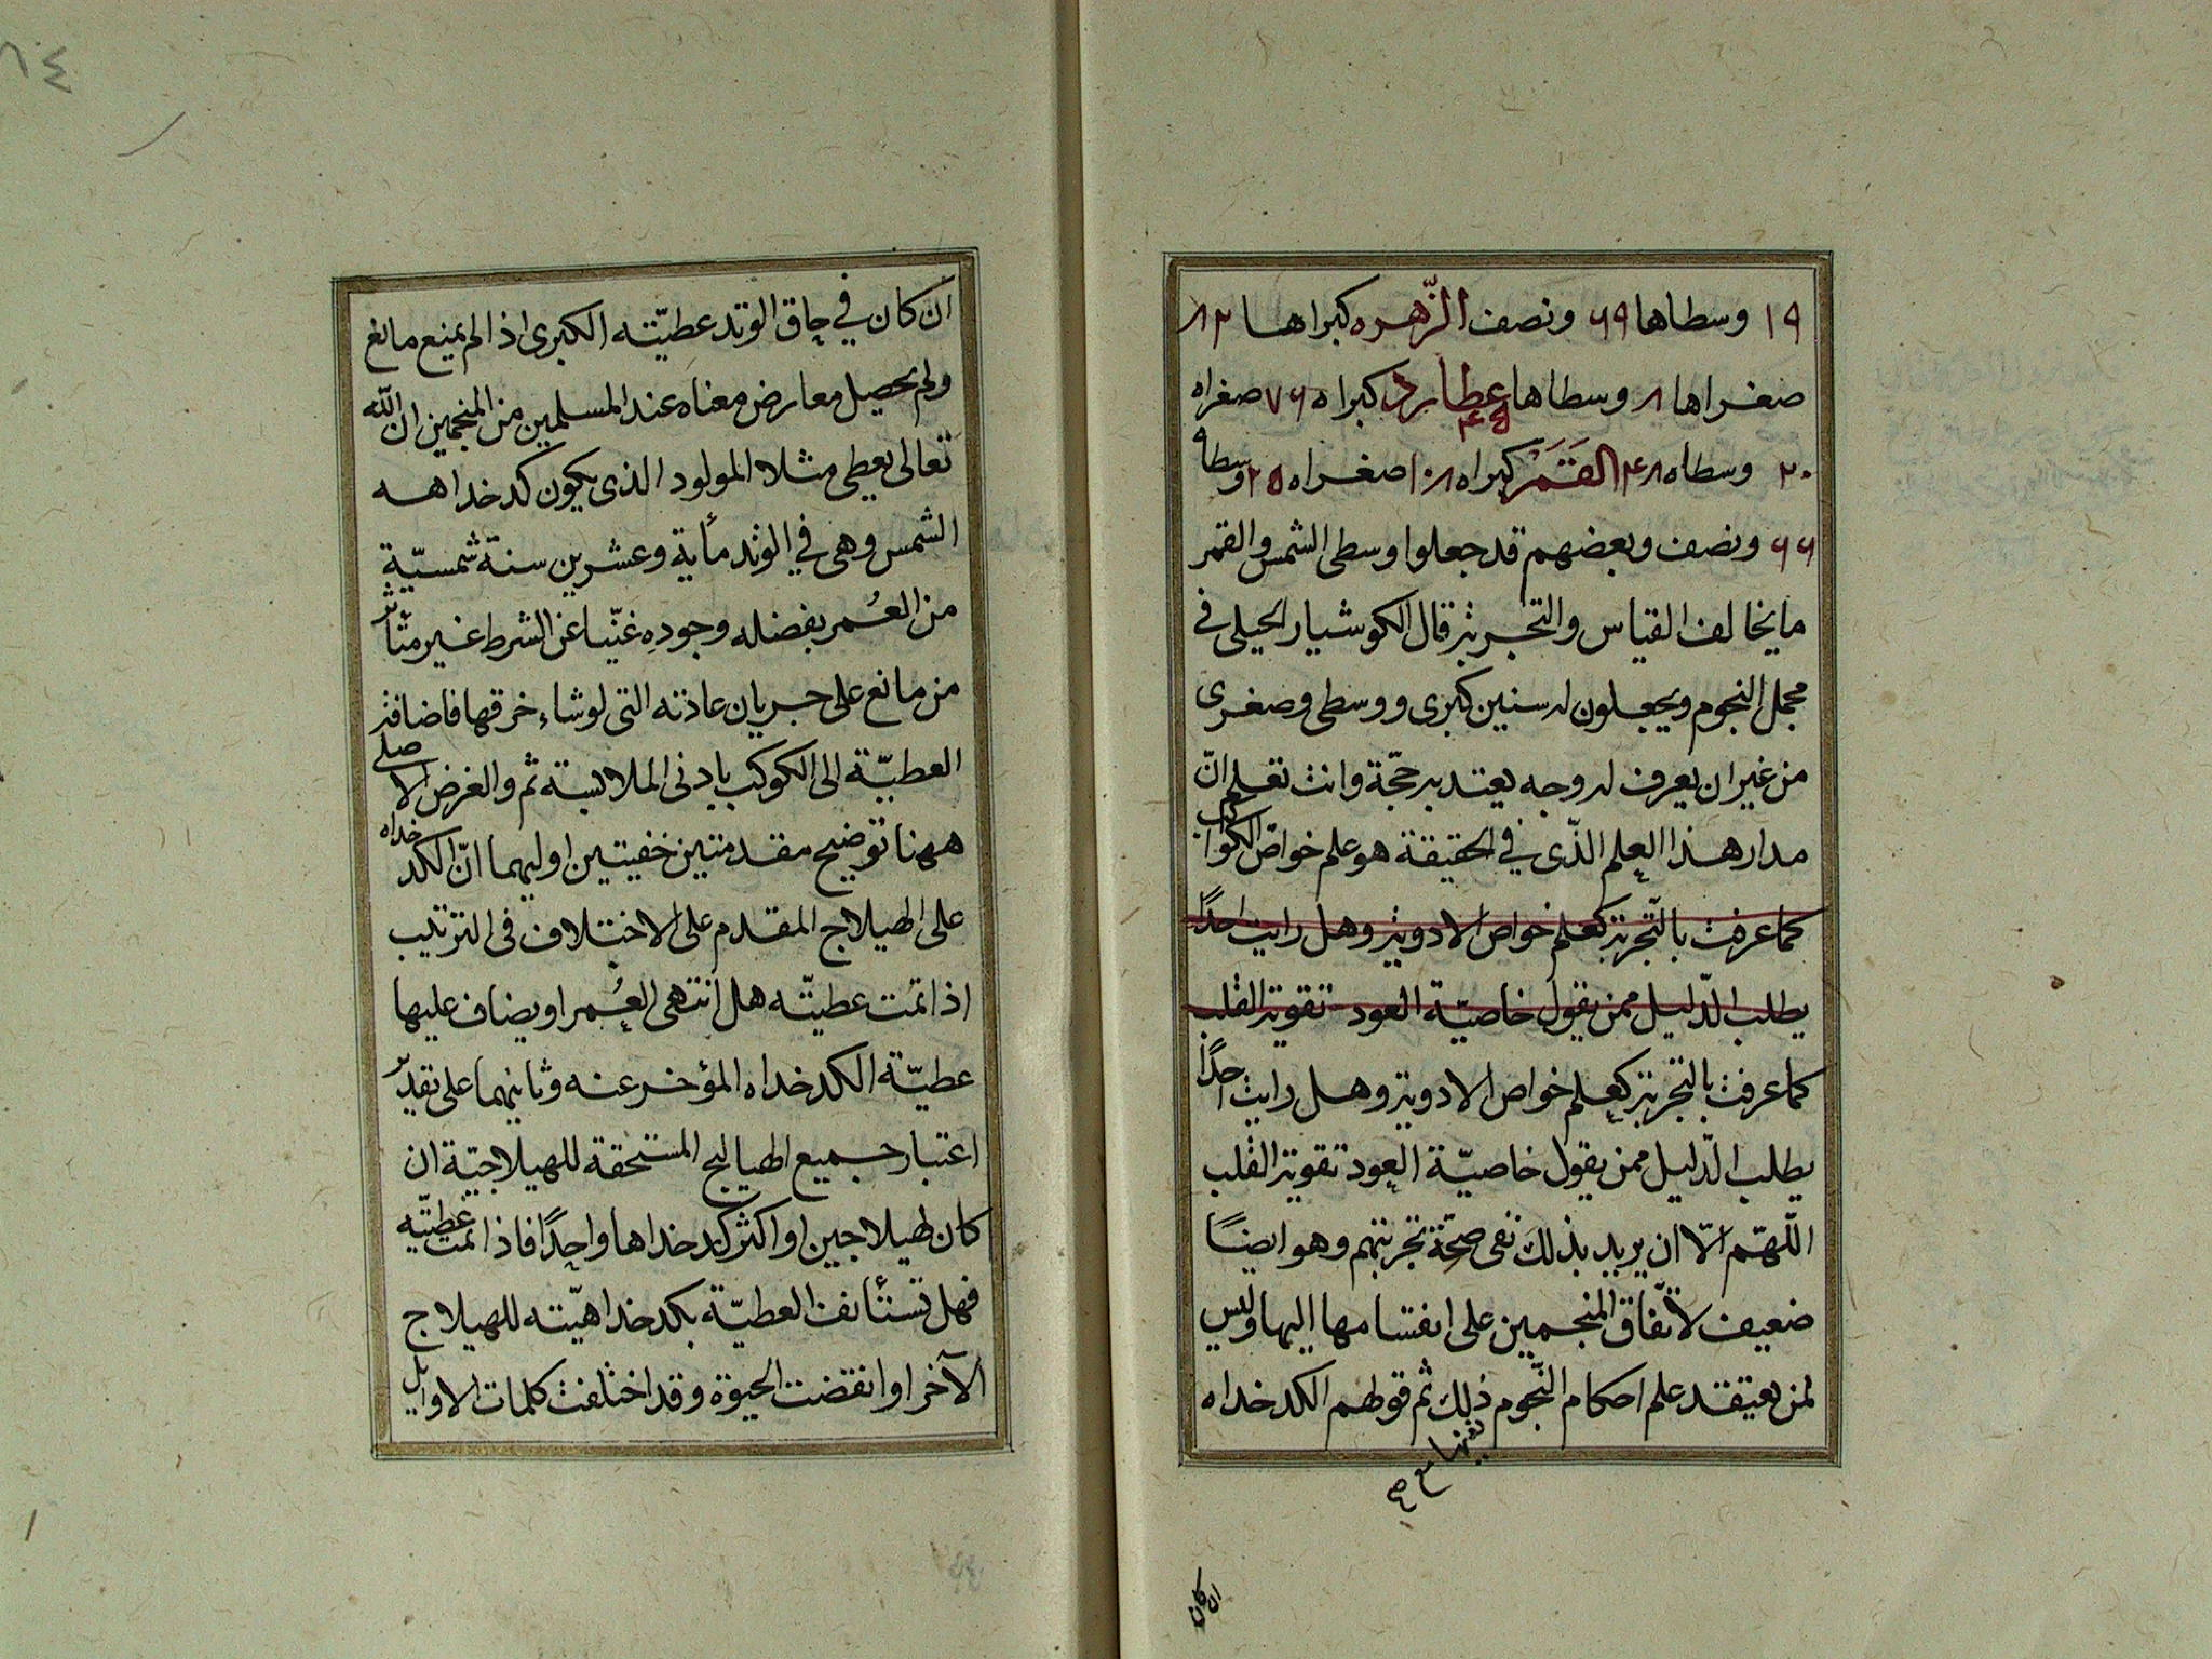 ١٩ وسطاها ٦٩ ونصف الزّهره كبراها ٨٢
صغراها ٨ وسطاها ٤٥ عطارد كبراه ٧٦ صغراه
٢٠ وسطاه ٤٨ القَمَر كبراه ١٠٨ صغراه ٢٥ وسطاه
٦٦ ونصف وبعضهم قد جعلوا وسطى الشمس والقمر
ما يخالف القياس والتجربة قال الكوشيار الجيلى في
مجمل النجوم ويجعلون له سنين كبرى ووسطى وصغرى
من غير ان يعرف له وجه يعتد به حجّة وانت تعلم انّ
مدار هذا العلم الذّى في الحقيقة هو علم خواصّ الكواكب
كما عرفت بالتّجربة كعلم خواص الادوية وهل رايت احدًا
يطلب الدّليل ممن يقول خاصيّة العود تقوية القلب
كما عرفت بالتجربة كعلم خواص الادوية وهل رايت احدًا
يطلب الدّليل ممن يقول خاصيّة العود تقوية القلب
اللّهمّ الّا ان يريد بذلك نفى صحّة تجربتهم وهو ايضًا
ضعيف لاتّفاق المنجمين على انقسامها اليها وليس
لمن يعتقد علم احكام النّجوم ذلك ثم قولهم الكدخداه
ان كان
ان كان في حاق الوتد عطيّته الكبرى اذا لم يمنع مانع
ولم يحصل معارض معناه عند المسلمين من المنجمين ان اللّه
تعالى يعطى مثلا المولود الذى يكون كدخداهه
الشمس وهى في الوتد مأية وعشرين سنة شمسيّة
من العُمر بفضله وجوده غنّيا عن الشرط غير متأثر
من مانع على جريان عادته التى لو شاء خرقها فاضافة
العطيّة الى الكوكب بادنى الملابسة ثم والغرض الاصلى
ههنا توضيح مقدمتين خفيتين اوليهما انّ الكدخداه
على الهيلاج المقدم على الاختلاف فى الترتيب
اذا تمت عطيّته هل انتهى العُمر او يضاف عليها
عطيّة الكدخداه المؤخر عنه وثانيهما على تقدير
اعتبار جميع الهياليج المستحقة للهيلاجيّة ان
كان لهيلاجين او اكثر كدخداها واحدًا فاذا تمت عطيّته
فهل تستأنف العطيّة بكدخداهيّته للهيلاج
الآخر او انقضت الحيوة وقد اختلفت كلمات الاوايل